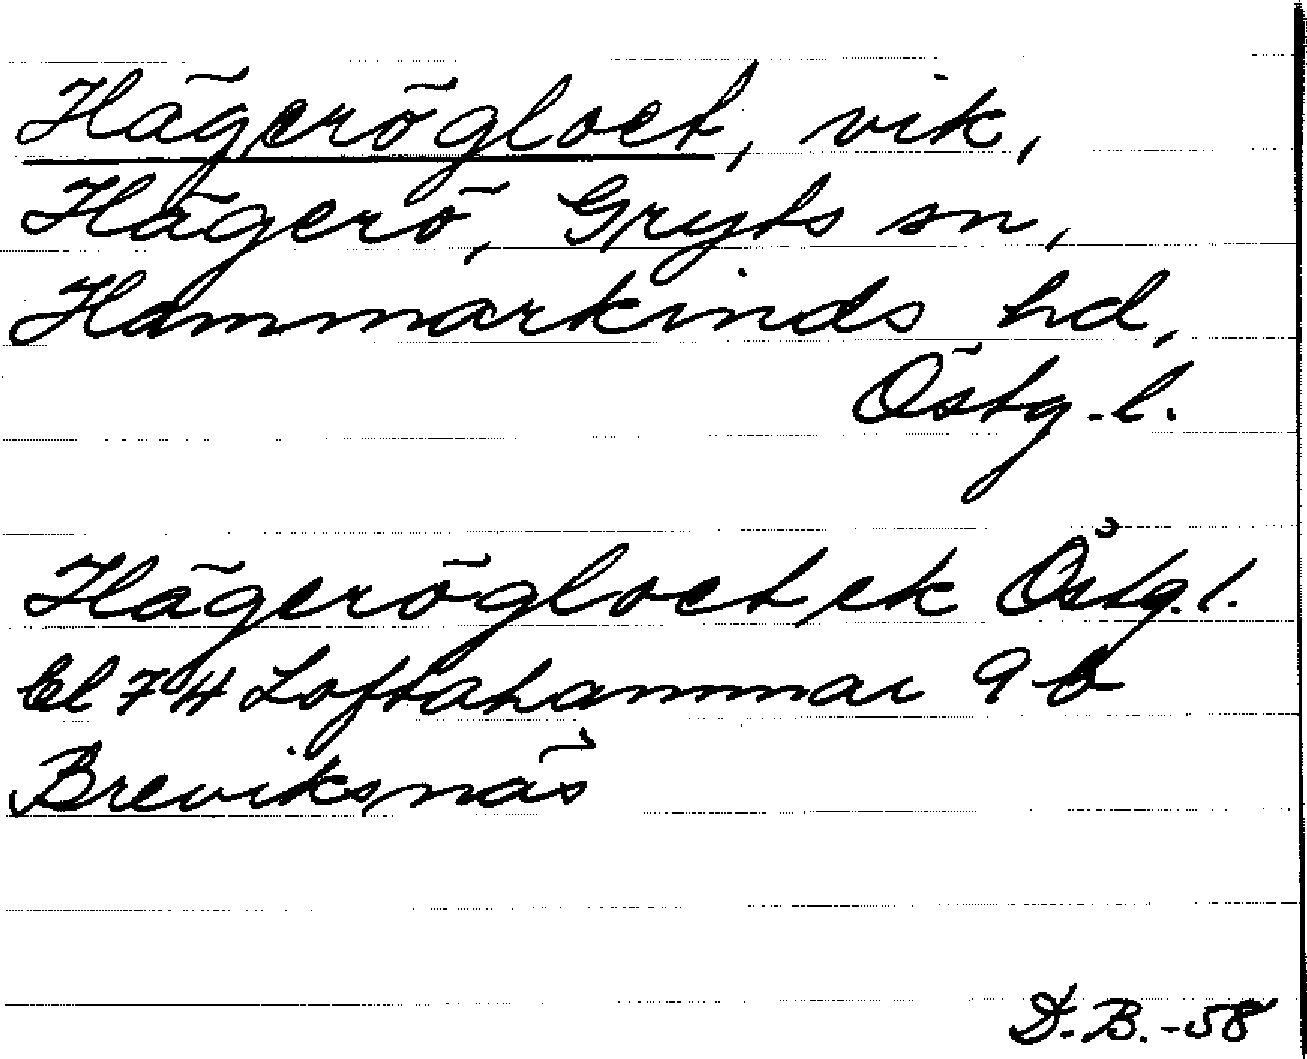 Hägerögloet, vik,
Hägerö, Gryts sn,
Hammarkinds hd,
Östg. l.
Hägerögloet, ek Östg. l.
bl 74 Loftahammar 9 b
Breviksnäs
D. B. -58